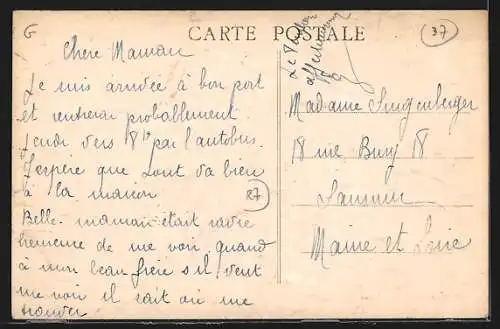 G
CARTE POSTALE
37
Chere Maman
Je suis arrivée à bon port
et rentrerai probablement
jeudi vers 8h par l'autobus.
J'espère que tout va bien
à la maison
87
Belle-maman était ravie
heureuse de me voir, quand
à mon beau frère s'il veut
me voir il sait où me
trouver
affectueux
Madame
18 rue Bury 18
Saumur
Maine et Loire